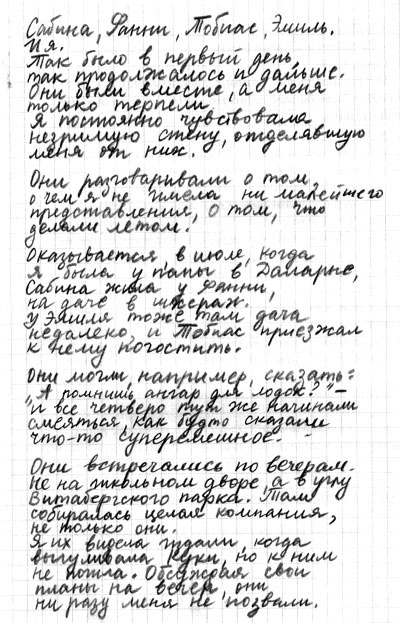 Сабина, Фанни, Тобиас, Эмиль.
И я.
Так было в первый день,
так продолжалось и дальше.
Они были вместе, а меня
только терпели.
Я постоянно чувствовала
незримую стену, отделявшую
меня от них.
Они разговаривали о том,
о чем я не имела ни малейшего
представления, о том, что
делали летом.
Оказывается, в июле, когда
я была у папы в Даларне,
Сабина жила у Фанни,
на даче в шхерах.
У Эмиля тоже там дача
недалеко, и Тобиас приезжал
к нему погостить.
Они могли, например, сказать:
"А помнишь ангар для лодок?" –
и все четверо тут же начинали
смеяться, как будто сказали
что-то суперсмешное.
Они встречались по вечерам.
Не на школьном дворе, а в углу
Витабергского парка. Там
собиралась целая компания,
не только они.
Я их видела издали, когда
выгуливала Куки, но к ним
не пошла. Обсуждая свои
планы на вечер, они
ни разу меня не позвали.